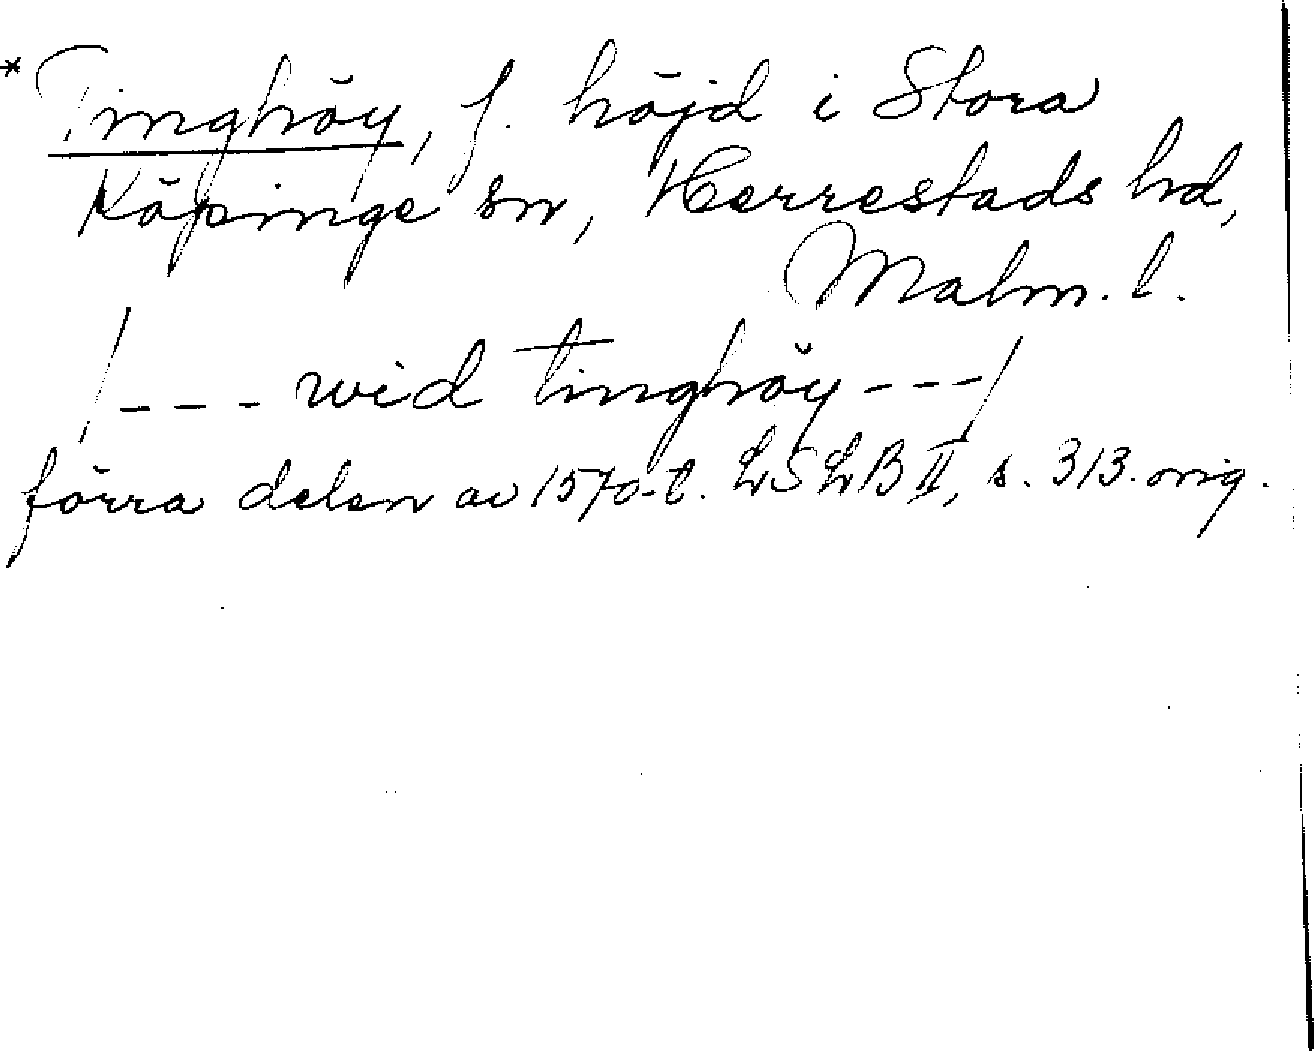 *Tinghöy, f. höjd i Stora
Köpinge sn, Herrestads hd,
Malm. l.
/--- wid tinghöy ---/
förra delen av 1570-t. LSLB II, s. 313. orig.